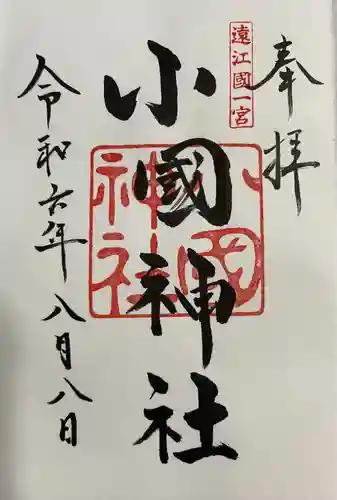 奉拝
遠江國一宮
小國神社
小國神社
令和六年八月八日